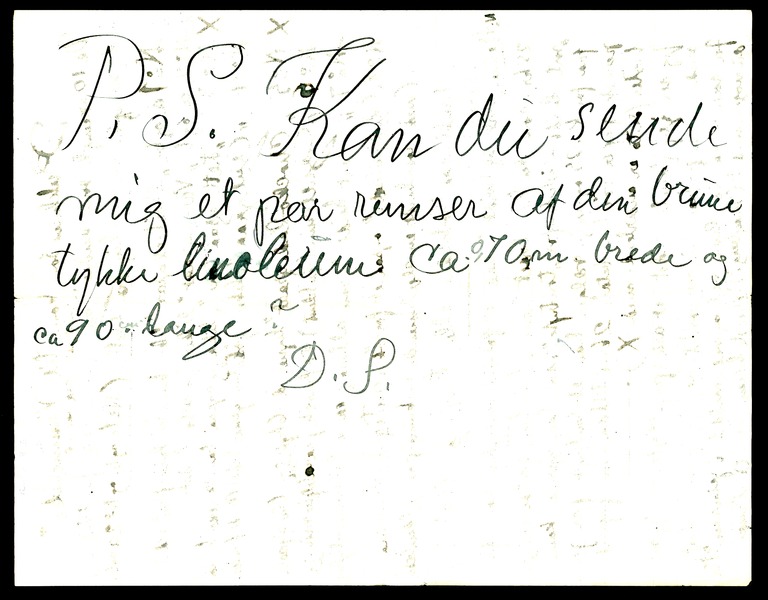 P.S. Kan du sende
mig et par remser af den brune
tykke linoleum ca 70 m brede og
ca 90 lange
D. S.